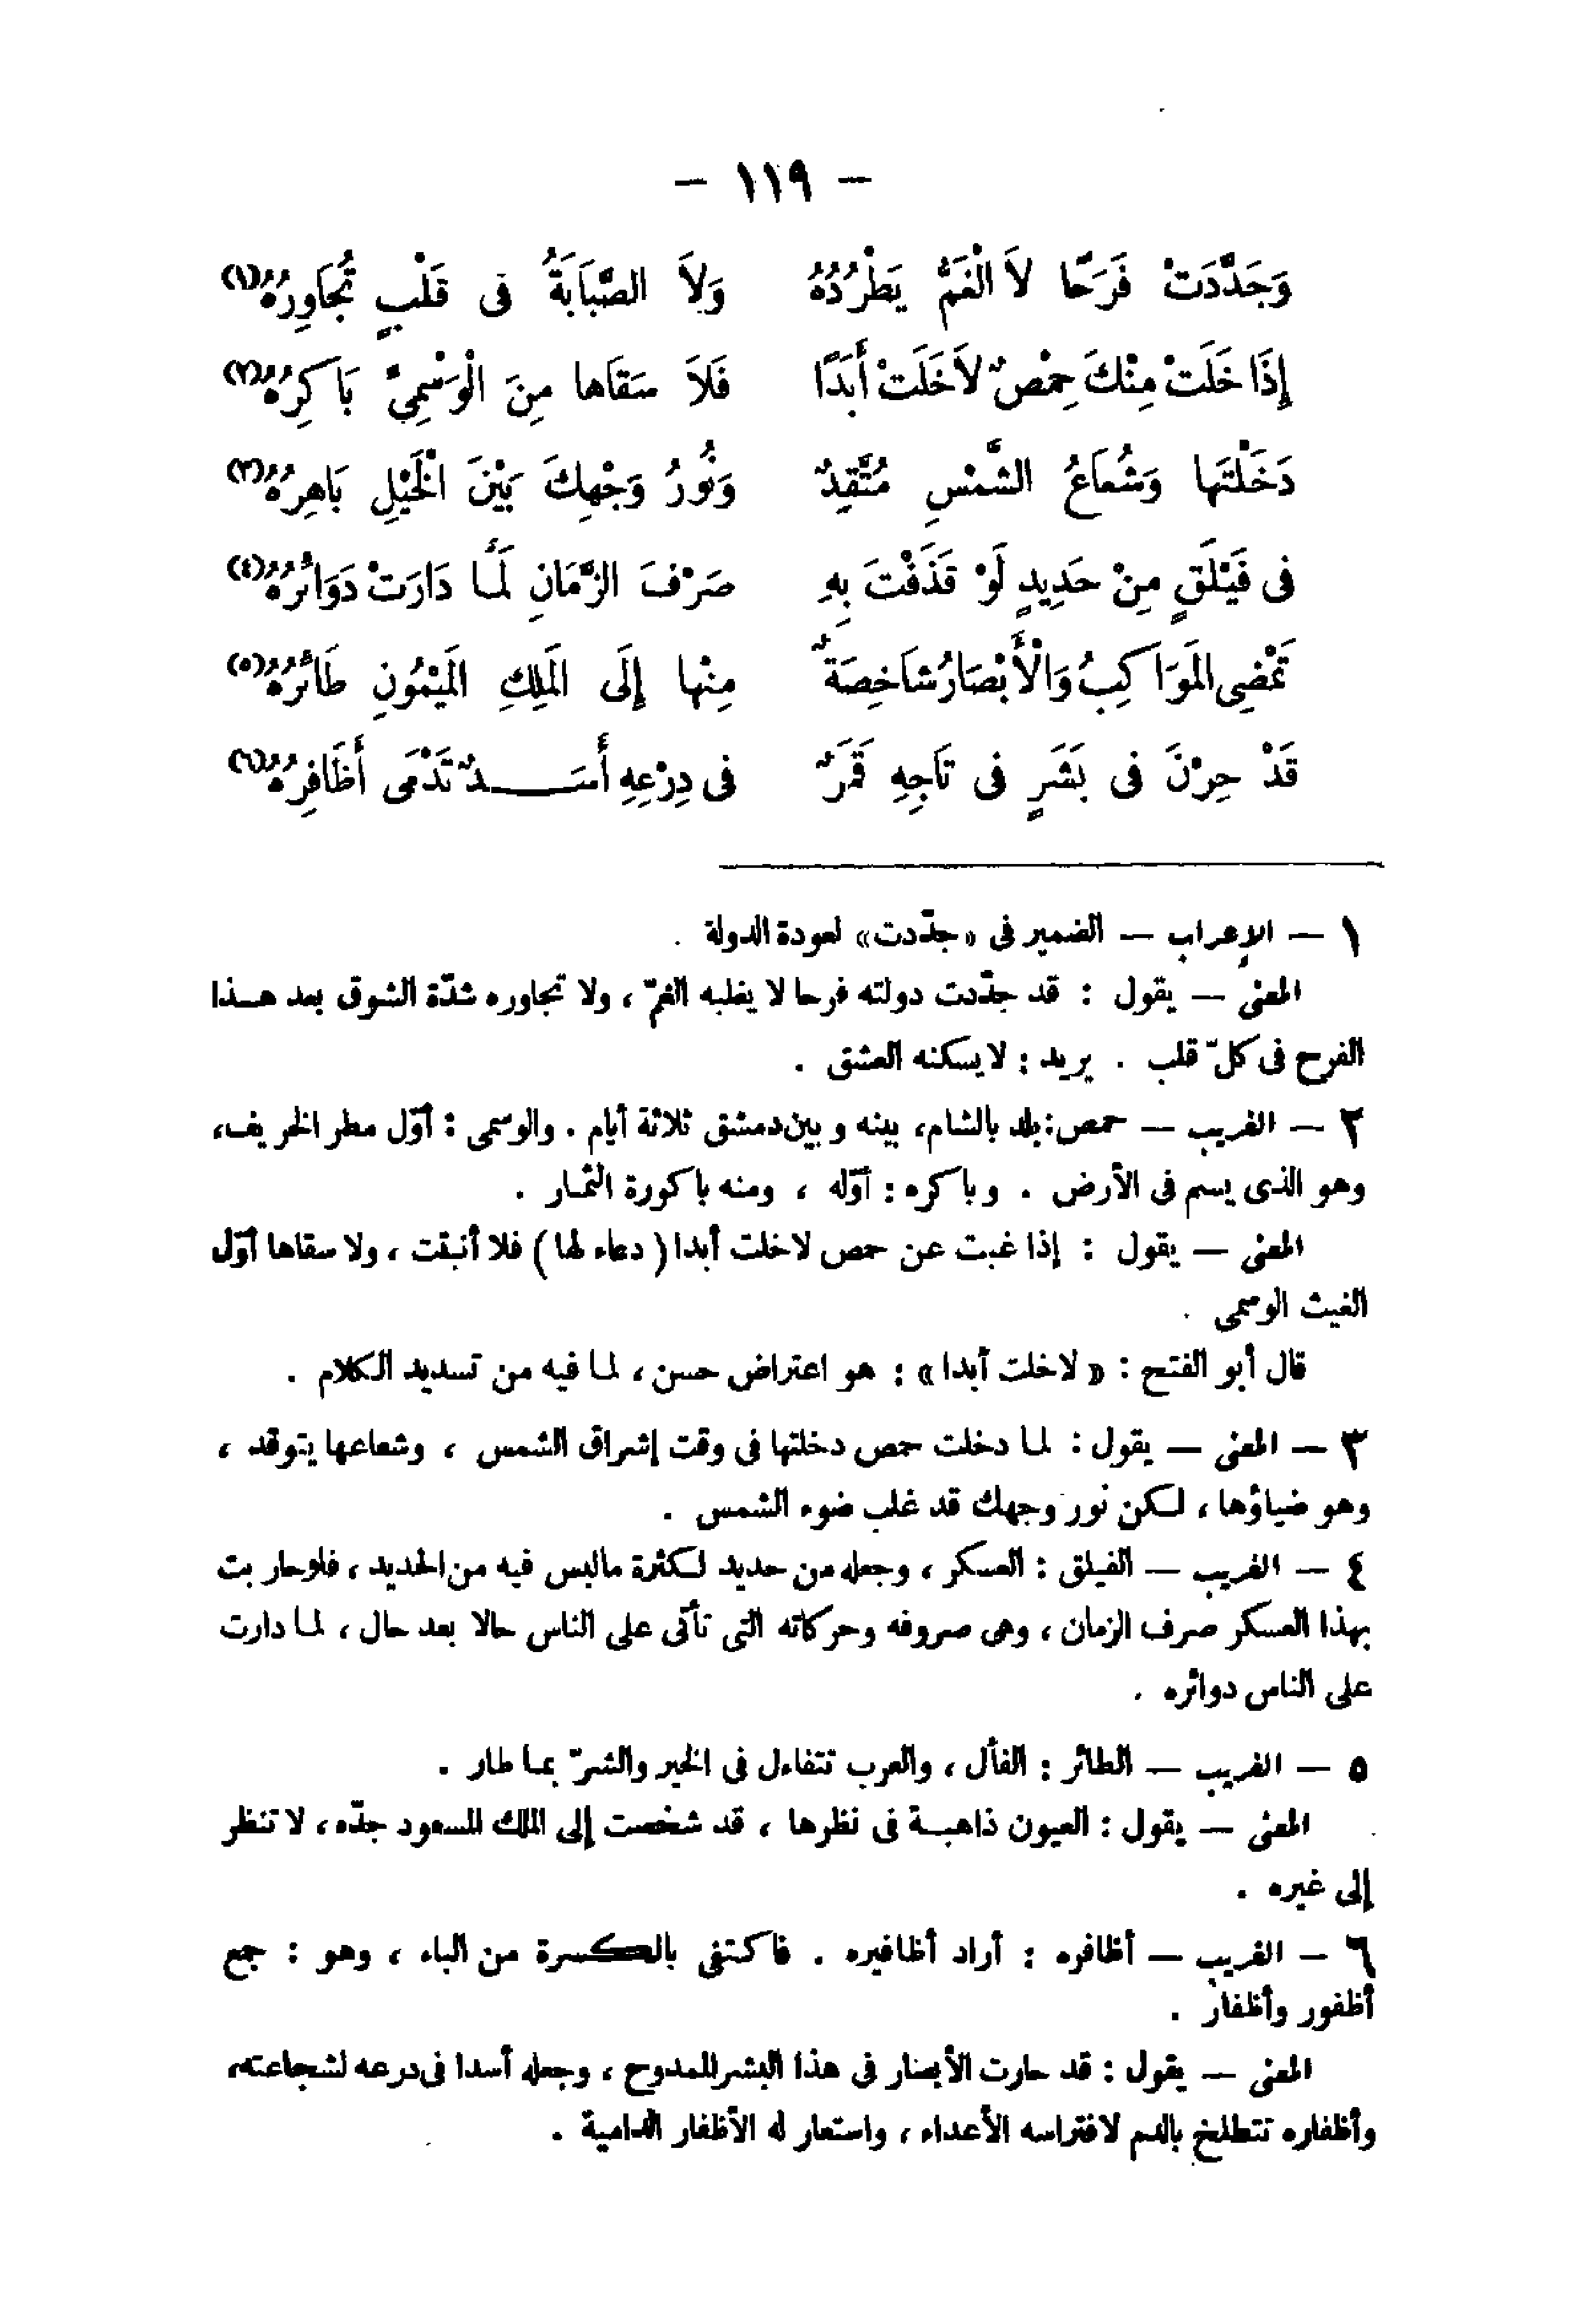 — ١١٩ —
وَجَدَّدَتْ فَرَحًا لاَ الْغَمُّ يَطْرُدُهُ وَلاَ الصَّبَابَةُ فى قَلْبٍ تُجَاوِرُهُ (١)
إِذَا خَلَتْ مِنْكَ حِمْصٌ لاَ خَلَتْ أَبَدًا فَلاَ سَقَاها مِنَ الْوَسْمِيِّ بَاكِرُهُ (٢)
دَخَلْتَها وَشُعَاعُ الشَّمْسِ مُتَّقِدٌ وَنُورُ وَجْهِكَ بَيْنَ الْخَيْلِ بَاهِرُهُ (٣)
فى فَيْلَقٍ مِنْ حَدِيدٍ لَوْ قَذَفْتَ بِهِ صَرْفَ الزَّمَانِ لَمَا دَارَتْ دَوَائرُهُ (٤)
تَمْضِى المَوَاكِبُ وَالْأَبْصَارُ شاَخِصَةٌ مِنْها إِلَى المَلِكِ المَيْمُونِ طَائرُهُ (٥)
قَدْ حِرْنَ فى بَشَرٍ فى تَاجِهِ قَمَرٌ فى دِرْعِهِ أَسَـــدٌ تَدْمَى أَظَافِرُهُ (٦)
١ — الإعراب — الضمير فى «جدّدت» لعودة الدولة .
المعنى — يقول : قد جدّدت دولته فرحا لا يغلبه الغمّ ، ولا تجاوره شدّة الشوق بعد هـذا
الفرح فى كلّ قلب . يريد : لا يسكنه العشق .
٢ — الغريب — حمص: بلد بالشام، بينه و بين دمشق ثلاثة أيام . والوسمى : أوّل مطر الخريف،
وهو الذى يسم فى الأرض . وباكره : أوّله ، ومنه باكورة الثمـار .
المعنى — يقول : إذا غبت عن حمص لاخلت أبدا ( دعاء لها ) فلا أنبقت ، ولا سقاها أوّل
الغيث الوسمى .
قال أبو الفتح : « لاخلت أبدا » : هو اعتراض حسن ، لما فيه من تسديد الكلام .
٣ — المعنى — يقول : لما دخلت حمص دخلتها فى وقت إشراق الشمس ، وشعاعها يتوقد ،
وهو ضياؤها ، لكن نور وجهك قد غلب ضوء الشمس .
٤ — الغريب — الفيلق : العسكر ، وجعله من حديد لكثرة مالبس فيه من الحديد ، فلو حار بت
بهذا العسكر صرف الزمان ، وهى صروفه وحركاته التى تأتى على الناس حالا بعد حال ، لما دارت
على الناس دوائره .
٥ — الغريب — الطائر : الفأل ، والعرب تتفاءل فى الخير والشرّ بما طار .
المعنى — يقول : العيون ذاهبـة فى نظرها ، قد شخصت إلى الملك المسعود جدّه ، لا تنظر
إلى غيره .
٦ — الغريب — أظافره : أراد أظافيره . فاكتفى بالكسرة من الياء ، وهو : جمع
أظفور وأظفار .
المعنى — يقول : قد حارت الأبصار فى هذا البشر الممدوح ، وجعله أسدا فى درعه لشجاعته،
وأظفاره تتطلخ بالدم لافتراسه الأعداء ، واستعار له الأظفار الدامية .